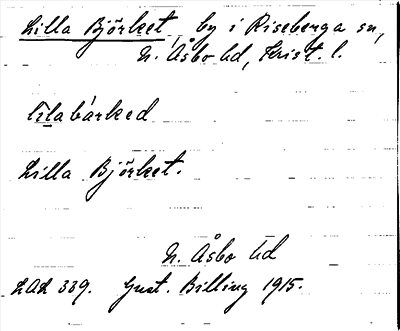 Lilla Björket, by i Riseberga sn,
N. Åsbo hd, Krist. l.
lilabårked
Lilla Björket.
N. Åsbo hd
LAL 339. Gust. Billing 1915.